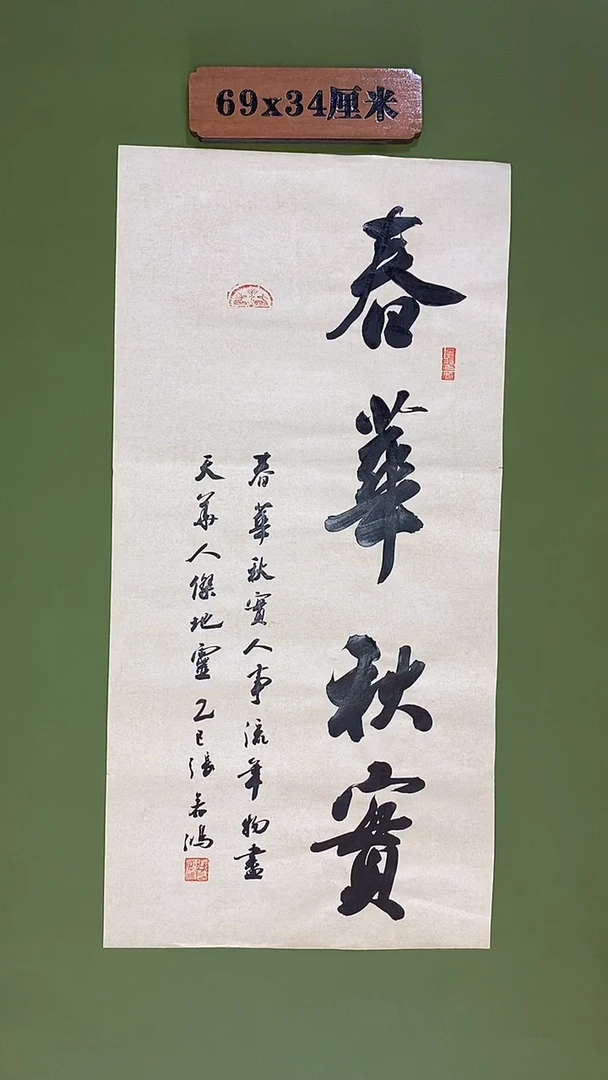 69x34厘米
春華秋實
春華秋實人事流年物盡
天華人傑地靈乙巳張若鴻